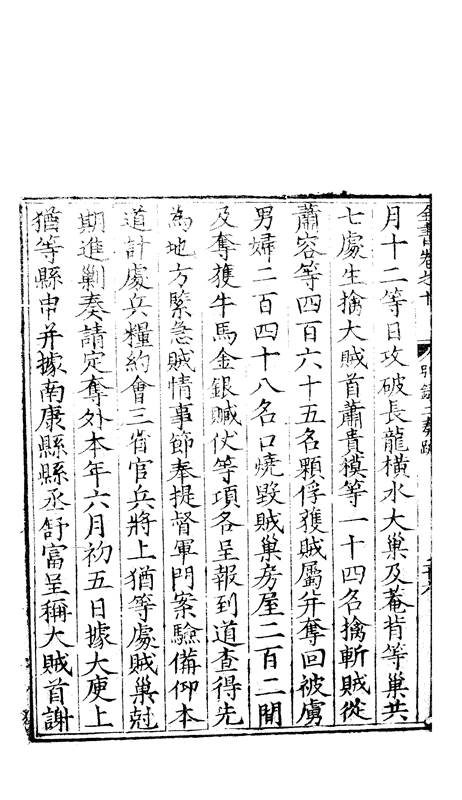 全書卷之十 別錄二奏疏
月十二等日攻破長龍橫水大巢及菴背等巢共
七處生擒大賊首蕭貴模等一十四名擒斬賊從
蕭容等四百六十五名顆俘獲賊屬并奪回被虜
男婦二百四十八名口燒毀賊巢房屋二百二間
及奪獲牛馬金銀贓仗等項各呈報到道查得先
為地方緊急賊情事節奉提督軍門案驗備仰本
道計處兵糧約會三省官兵將上猶等處賊巢尅
期進剿奏請定奪外本年六月初五日據大庾上
猶等縣申并據南康縣縣丞舒富呈稱大賊首謝